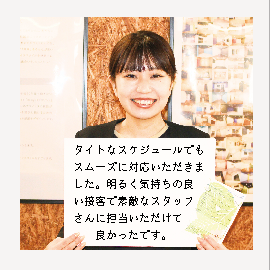 タイトなスケジュールでも
スムーズに対応いただきま
した。明るく気持ちの良
い接客で素敵なスタッフ
さんに担当いただけて
良かったです。